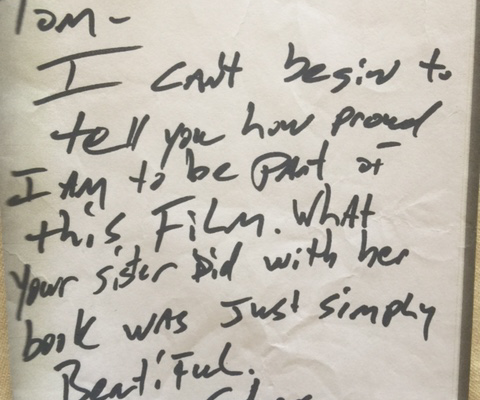 Tom-
I CAN'T begin to
tell you how proud
I AM to be PArt of
this FiLM. WhAt
your sister Did with her
book was Just simply
BeAutiFul.